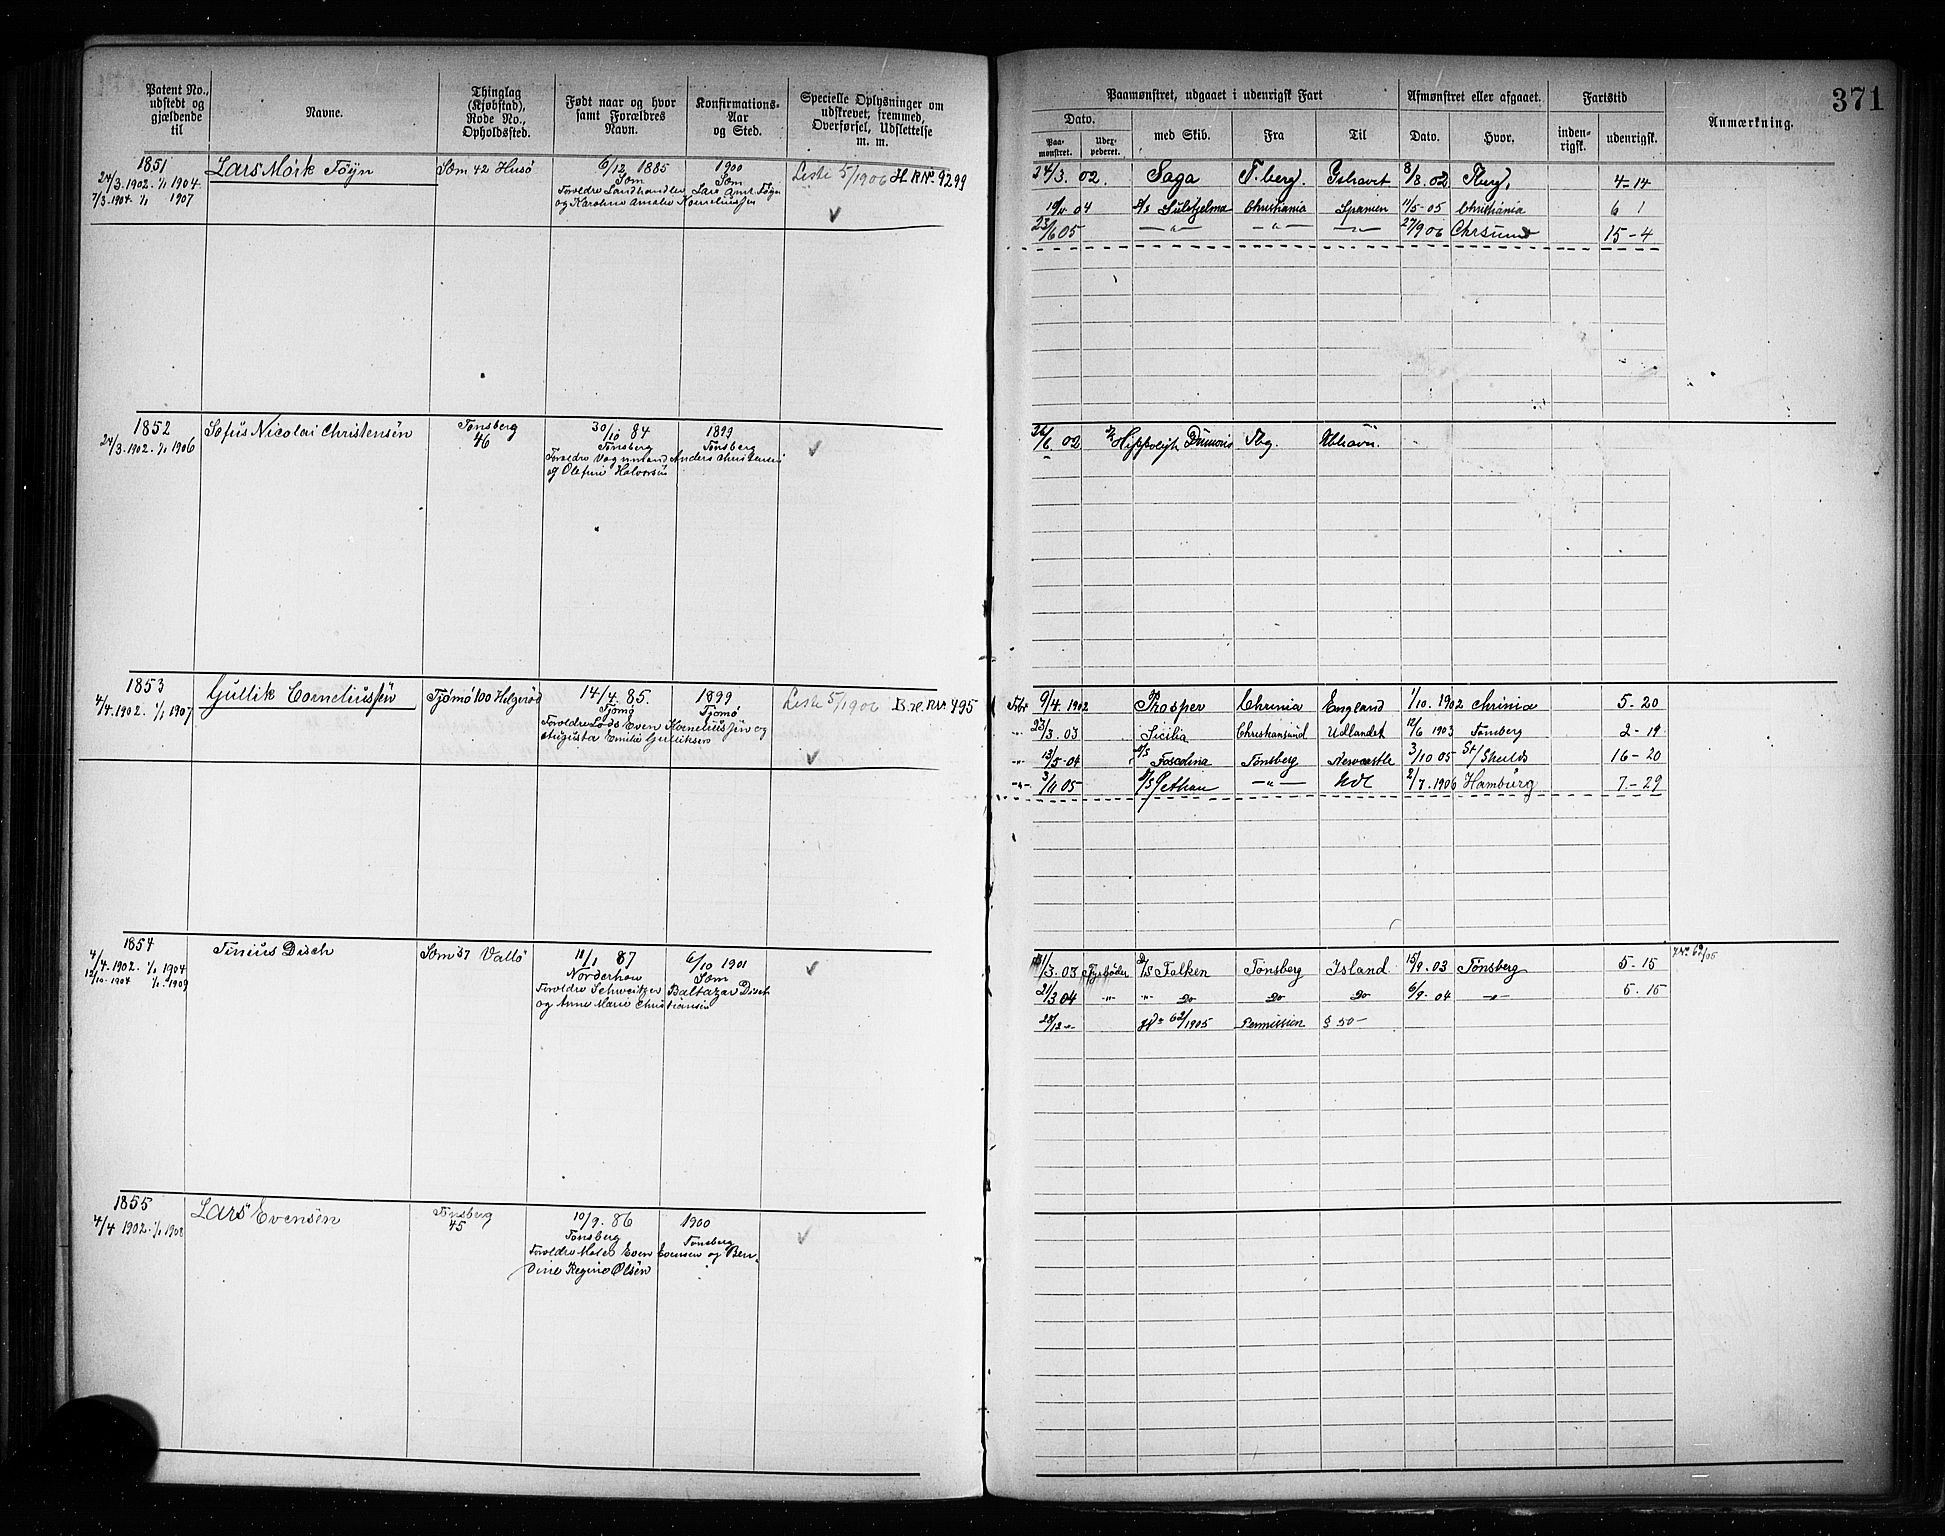 Patent No., udstedt og gjældende til
Navne.
Thinglag (Kjøbstad), Rode No., Opholdssted.
Født naar og hvor samt Forældres Navn.
Konfirmations-Aar og Sted.
Specielle Oplysninger om udskrevet, fremmed, Overførsel, Udslettelse m. m.
1851
24/3. 1902. 1/1 1904.
7/3. 1904. 1/1 1907
Lars Mörk Föyn
Sem 42 Husö
6/12 1885
Sem
1900
Sem
Forældre Landhandler Lars Amt. Föyn
og Karoline Amalie Korneliussen
Liste 5/1906 H. R Nr. 9299
1852
24/3. 1902. 1/1 1906
Sofus Nicolai Christensen
Tönsberg
46
30/10 84
Tönsberg
1899
Tönsberg
Forældre Vognmand Anders Christensen
og Olefine Halvorsen
1853
4/4. 1902. 1/1 1907
Gullik Corneliussen
Tjömö 100 Helgeröd
14/4. 85.
Tjömö
1899
Tjömö
Forældre Lods Even Korneliussen og
Augusta Emilie Gulliksen
Liste 5/1906 B. H. R Nr. 495
1854
4/4. 1902. 1/1 1904
12/10. 1904 1/1. 1909
Tinius Disch
Sem 57 Vallö
11/1 87
Norderhov
6/10 1901
Sem
Forældre Schweitzer Baltazar Disch
og Anne Marie Christiansen
1855
4/4 1902. 1/1 1908
Lars Evensen
Tönsberg
45
10/9. 86
Tönsberg
1900
Tönsberg
Forældre Matros Even Evensen og Ben-
dine Regine Olsen
371
Paamønstret, udgaaet i udenrigsk Fart
Afmønstret eller afgaaet.
Fartstid
Anmærkning.
Dato.
Paamønstret.
Uderpederet.
med Skib.
Fra
Til
Dato.
Hvor.
indenrigsk.
udenrigsk.
24/3. 02. Saga T.berg. Ishavet 8/8. 02 Tberg. 4-14
19/11 04 D/S Sulitjelma Christiania Spanien 11/5-05 Christiania 6 1
23/6 05 —"— —"— —"— 27/9 06 Chrsund 15-4
26/6. 02 Hippolyt Dumois Tbg.
9/4. 1902 Prosper Chrinia England 1/10. 1902 Chrinia 5-20
23/3. 03 Sicilia Christiansund Udlandet 12/6 1903 Tønsberg 2-19
13/5-04 D/S Foscolina Tønsberg Newcastle 3/10 05 St/Sheilds 16-20
3/11 05 —"— Udl 2/7. 1906 Hamburg 7-29
11/3. 03 Fyrböder D/S Falken Tönsberg Island 15/9. 03 Tönsberg 5-15
21/3 04 —"— " do do do 6/9. 04 —"— 5-15
28/12 62/1905 Permission § 50-